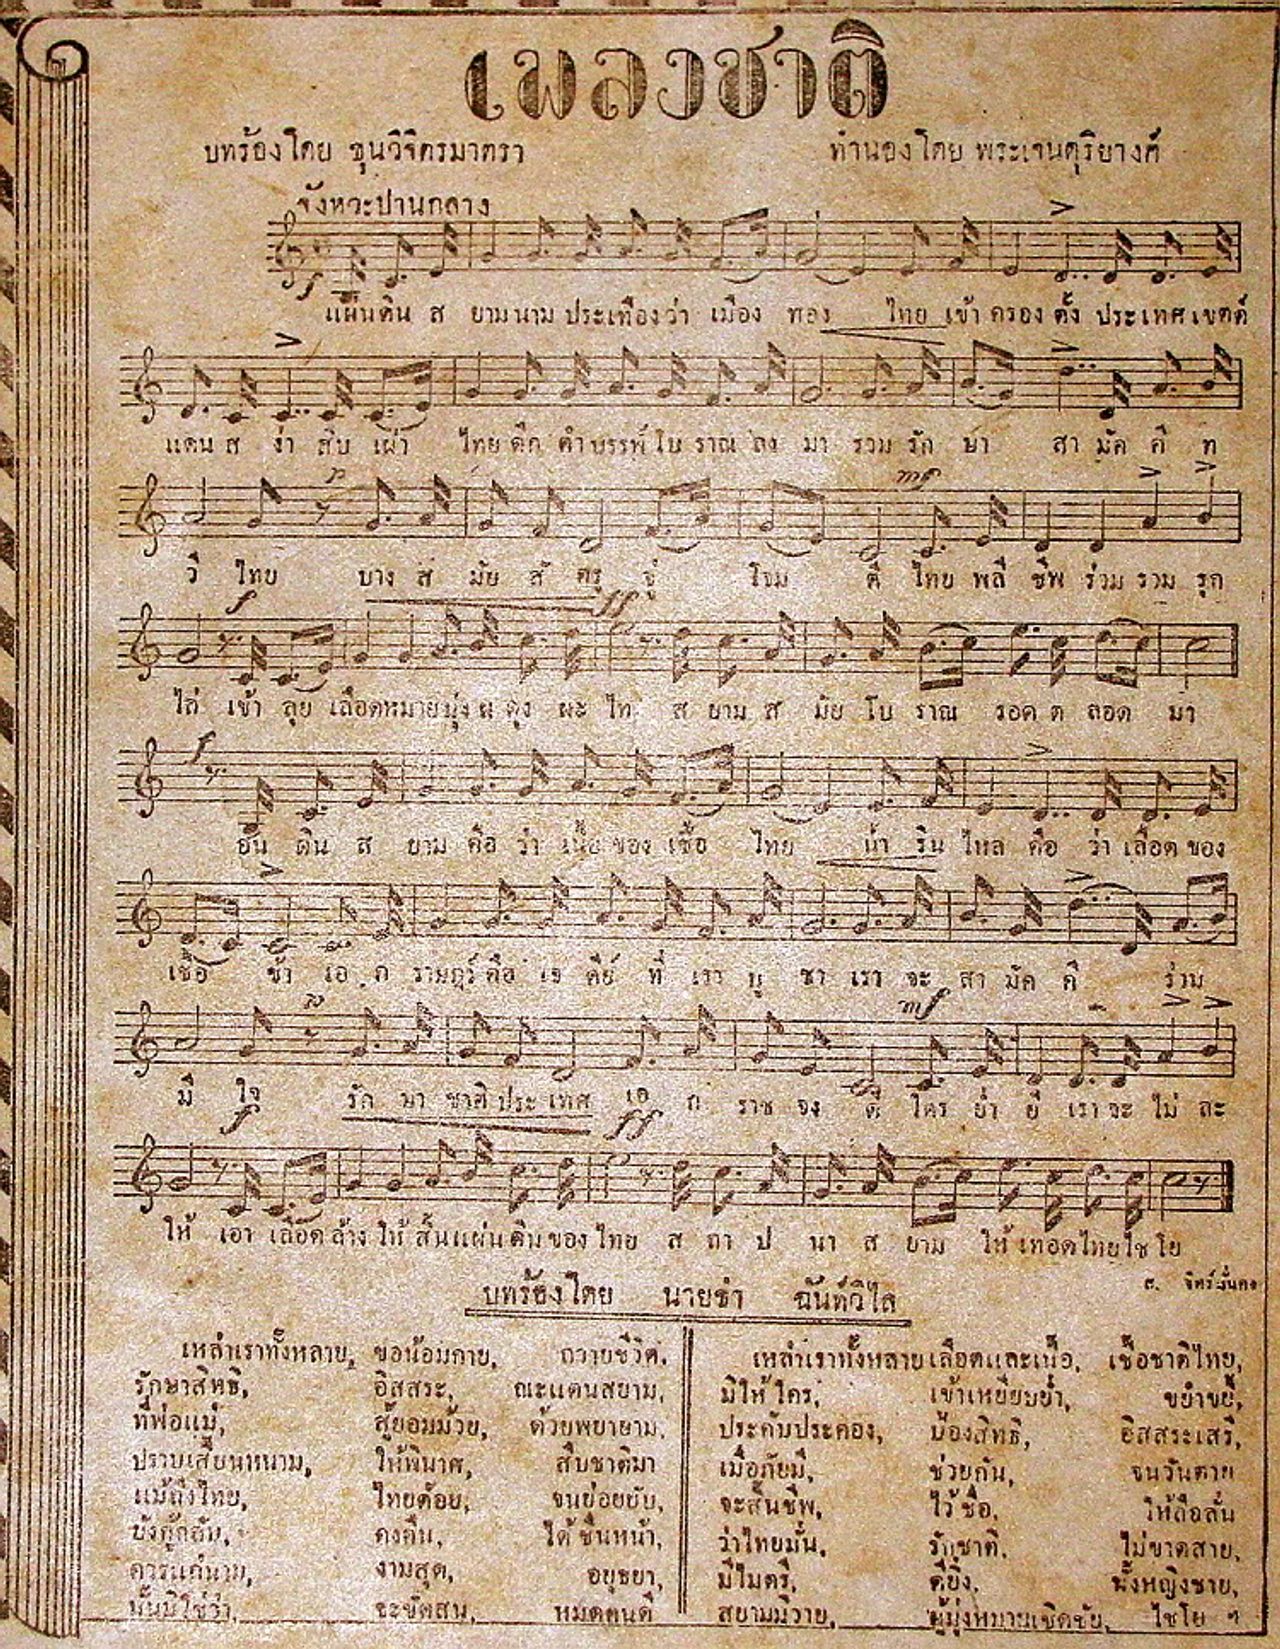 เพลงชาติ
บทร้องโดย ขุนวิจิตรมาตรา ทำนองโดย พระเจนดุริยางค์
จังหวะปานกลาง
f
แผ่นดิน ส ยาม นาม ประเทืองว่า เมือง ทอง ไทย เข้า ครอง ตั้ง ประเทศ เขตต์
แดน ส ง่า สืบ เผ่า ไทย ดึก ดำ บรรพ์ โบ ราณ ลง มา รวม รัก ษา สา มัค คี ท
p mf
วี ไทย บาง ส มัย ศั ตรู จู่ โจม ตี ไทย พลี ชีพ ร่วม รวม รุก
f ff
ไล่ เข้า ลุย เลือด หมาย มุ่ง ผ ดุง ผะ ไท ส ยาม ส มัย โบ ราณ รอด ต ลอด มา
f
อัน ดิน ส ยาม คือ ว่า เนื้อ ของ เชื้อ ไทย น้ำ ริน ไหล คือ ว่า เลือด ของ
เชื้อ ข้า เอ ก ราษฎร์ คือ เจ ดีย์ ที่ เรา บู ชา เรา จะ สา มัค คี ร่วม
p mf
มี ใจ รัก ษา ชาติ ประ เทศ เอ ก ราช จง ดี ใคร ย่ำ ยี เรา จะ ไม่ ละ
f ff
ให้ เอา เลือด ล้าง ให้ สิ้น แผ่น ดิน ของ ไทย ส ถา ป นา ส ยาม ให้ เทอด ไทย ไช โย
บทร้องโดย นายฉ่ำ ฉันท์วิไล
เหล่าเราทั้งหลาย, ขอน้อมกาย, ถวายชีวิต,
รักษาสิทธิ, อิสสระ, ณะแดนสยาม,
ที่พ่อแม่, สู้ยอมม้วย, ด้วยพยายาม,
ปราบเสี้ยนหนาม, ให้พินาศ, สืบชาติมา
แม้ถึงไทย, ไทยด้อย, จนย่อยยับ,
ยังกู้กลับ, คงคืน, ได้ชื่นหน้า,
ควรแก่นาม, งามสุด, อยุธยา,
นั้นมิใช่ว่า, จะขัดสน, หมดคนดี
เหล่าเราทั้งหลาย เลือดและเนื้อ, เชื้อชาติไทย,
มิให้ใคร, เข้าเหยียบย่ำ, ขยำขยี้,
ประคับประคอง, ป้องสิทธิ, อิสสระเสรี,
เมื่อภัยมี, ช่วยกัน, จนวันตาย
จะสิ้นชีพ, ไว้ชื่อ, ให้ลือลั่น
ว่าไทยมั่น, รักชาติ, ไม่ขาดสาย,
มีไมตรี, ดียิ่ง, ทั้งหญิงชาย,
สยามมิวาย, ผู้มุ่งหมายเชิดชัย, ไชโย ฯ